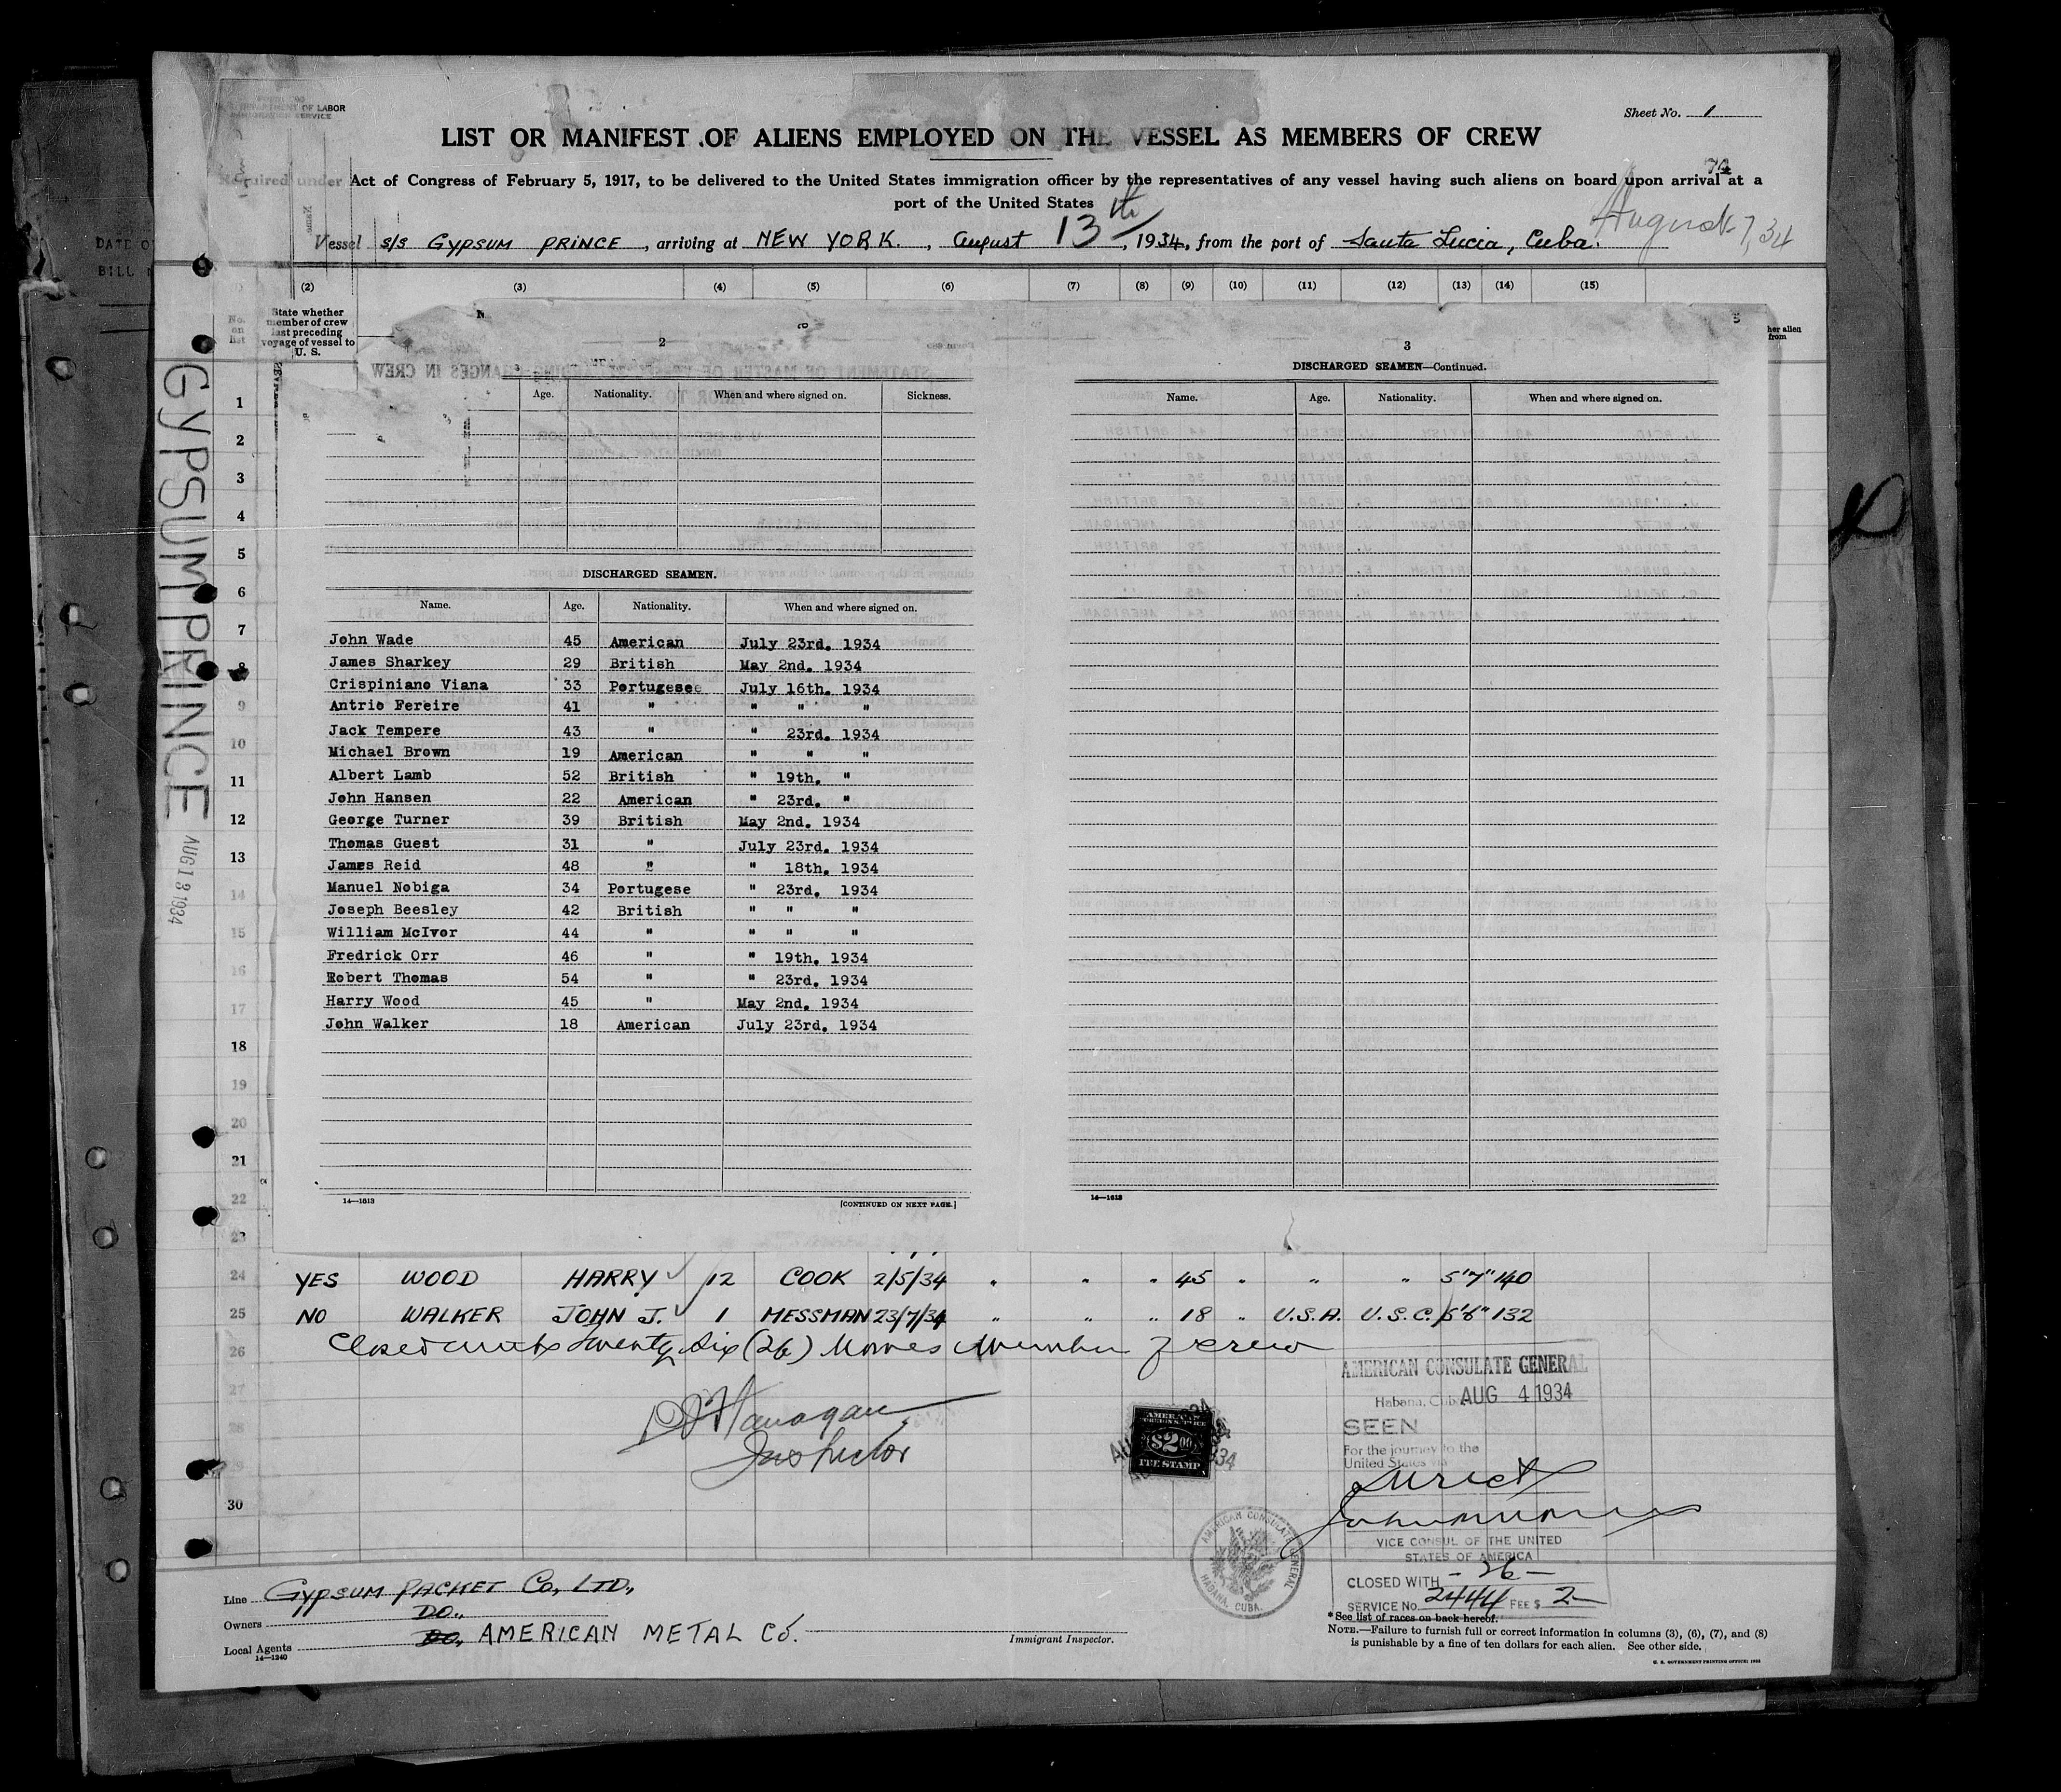 DEPARTMENT OF LABOR
IMMIGRATION SERVICE
Sheet No. 1
LIST OR MANIFEST OF ALIENS EMPLOYED ON THE VESSEL AS MEMBERS OF CREW
Required under Act of Congress of February 5, 1917, to be delivered to the United States immigration officer by the representatives of any vessel having such aliens on board upon arrival at a
port of the United States
Vessel s/s GYPSUM PRINCE, arriving at NEW YORK., August 13th, 1934, from the port of Santa Lucia, Cuba. August 7, 34
(2) (3) (4) (5) (6) (7) (8) (9) (10) (11) (12) (13) (14) (15)
No. on list
State whether member of crew last preceding voyage of vessel to U. S.
GYPSUM PRINCE
AUG 13 1934
2
Age. Nationality. When and where signed on. Sickness.
DISCHARGED SEAMEN.
Name. Age. Nationality. When and where signed on.
John Wade 45 American July 23rd. 1934
James Sharkey 29 British May 2nd. 1934
Crispiniano Viana 33 Portugesee July 16th. 1934
Antrio Fereire 41 " " " "
Jack Tempere 43 " " 23rd. 1934
Michael Brown 19 American " " "
Albert Lamb 52 British " 19th. "
John Hansen 22 American " 23rd. "
George Turner 39 British May 2nd. 1934
Thomas Guest 31 " July 23rd. 1934
James Reid 48 " " 18th. 1934
Manuel Nobiga 34 Portugese " 23rd. 1934
Joseph Beesley 42 British " " "
William McIvor 44 " " " "
Fredrick Orr 46 " " 19th. 1934
Robert Thomas 54 " " 23rd. 1934
Harry Wood 45 " May 2nd. 1934
John Walker 18 American July 23rd. 1934
14—1813 [CONTINUED ON NEXT PAGE.]
3
DISCHARGED SEAMEN—Continued.
Name. Age. Nationality. When and where signed on.
14—1813
1
2
3
4
5
6
7
8
9
10
11
12
13
14
15
16
17
18
19
20
21
22
23
24 YES WOOD HARRY 12 COOK 2/5/34 " " " 45 " " " 5'7" 140
25 NO WALKER JOHN J. 1 MESSMAN 23/7/34 " " " 18 " U.S.A. U.S.C. 5'6" 132
26 Closed with twenty six (26) Names Member of crew
27
28
29
30
Inspector
AMERICAN FOREIGN SERVICE
$2.00
FEE STAMP
AMERICAN CONSULATE GENERAL
Habana, Cuba AUG 4 1934
SEEN
For the journey to the
United States via
VICE CONSUL OF THE UNITED
STATES OF AMERICA
CLOSED WITH -26-
SERVICE No. 2444 FEE $ 2-
AMERICAN CONSULATE GENERAL HABANA, CUBA.
Line GYPSUM PACKET Co., LTD.,
Owners DO.,
Local Agents DO., AMERICAN METAL Co.
14—1240
Immigrant Inspector.
*See list of races on back hereof.
NOTE.—Failure to furnish full or correct information in columns (3), (6), (7), and (8)
is punishable by a fine of ten dollars for each alien. See other side.
U. S. GOVERNMENT PRINTING OFFICE: 1933